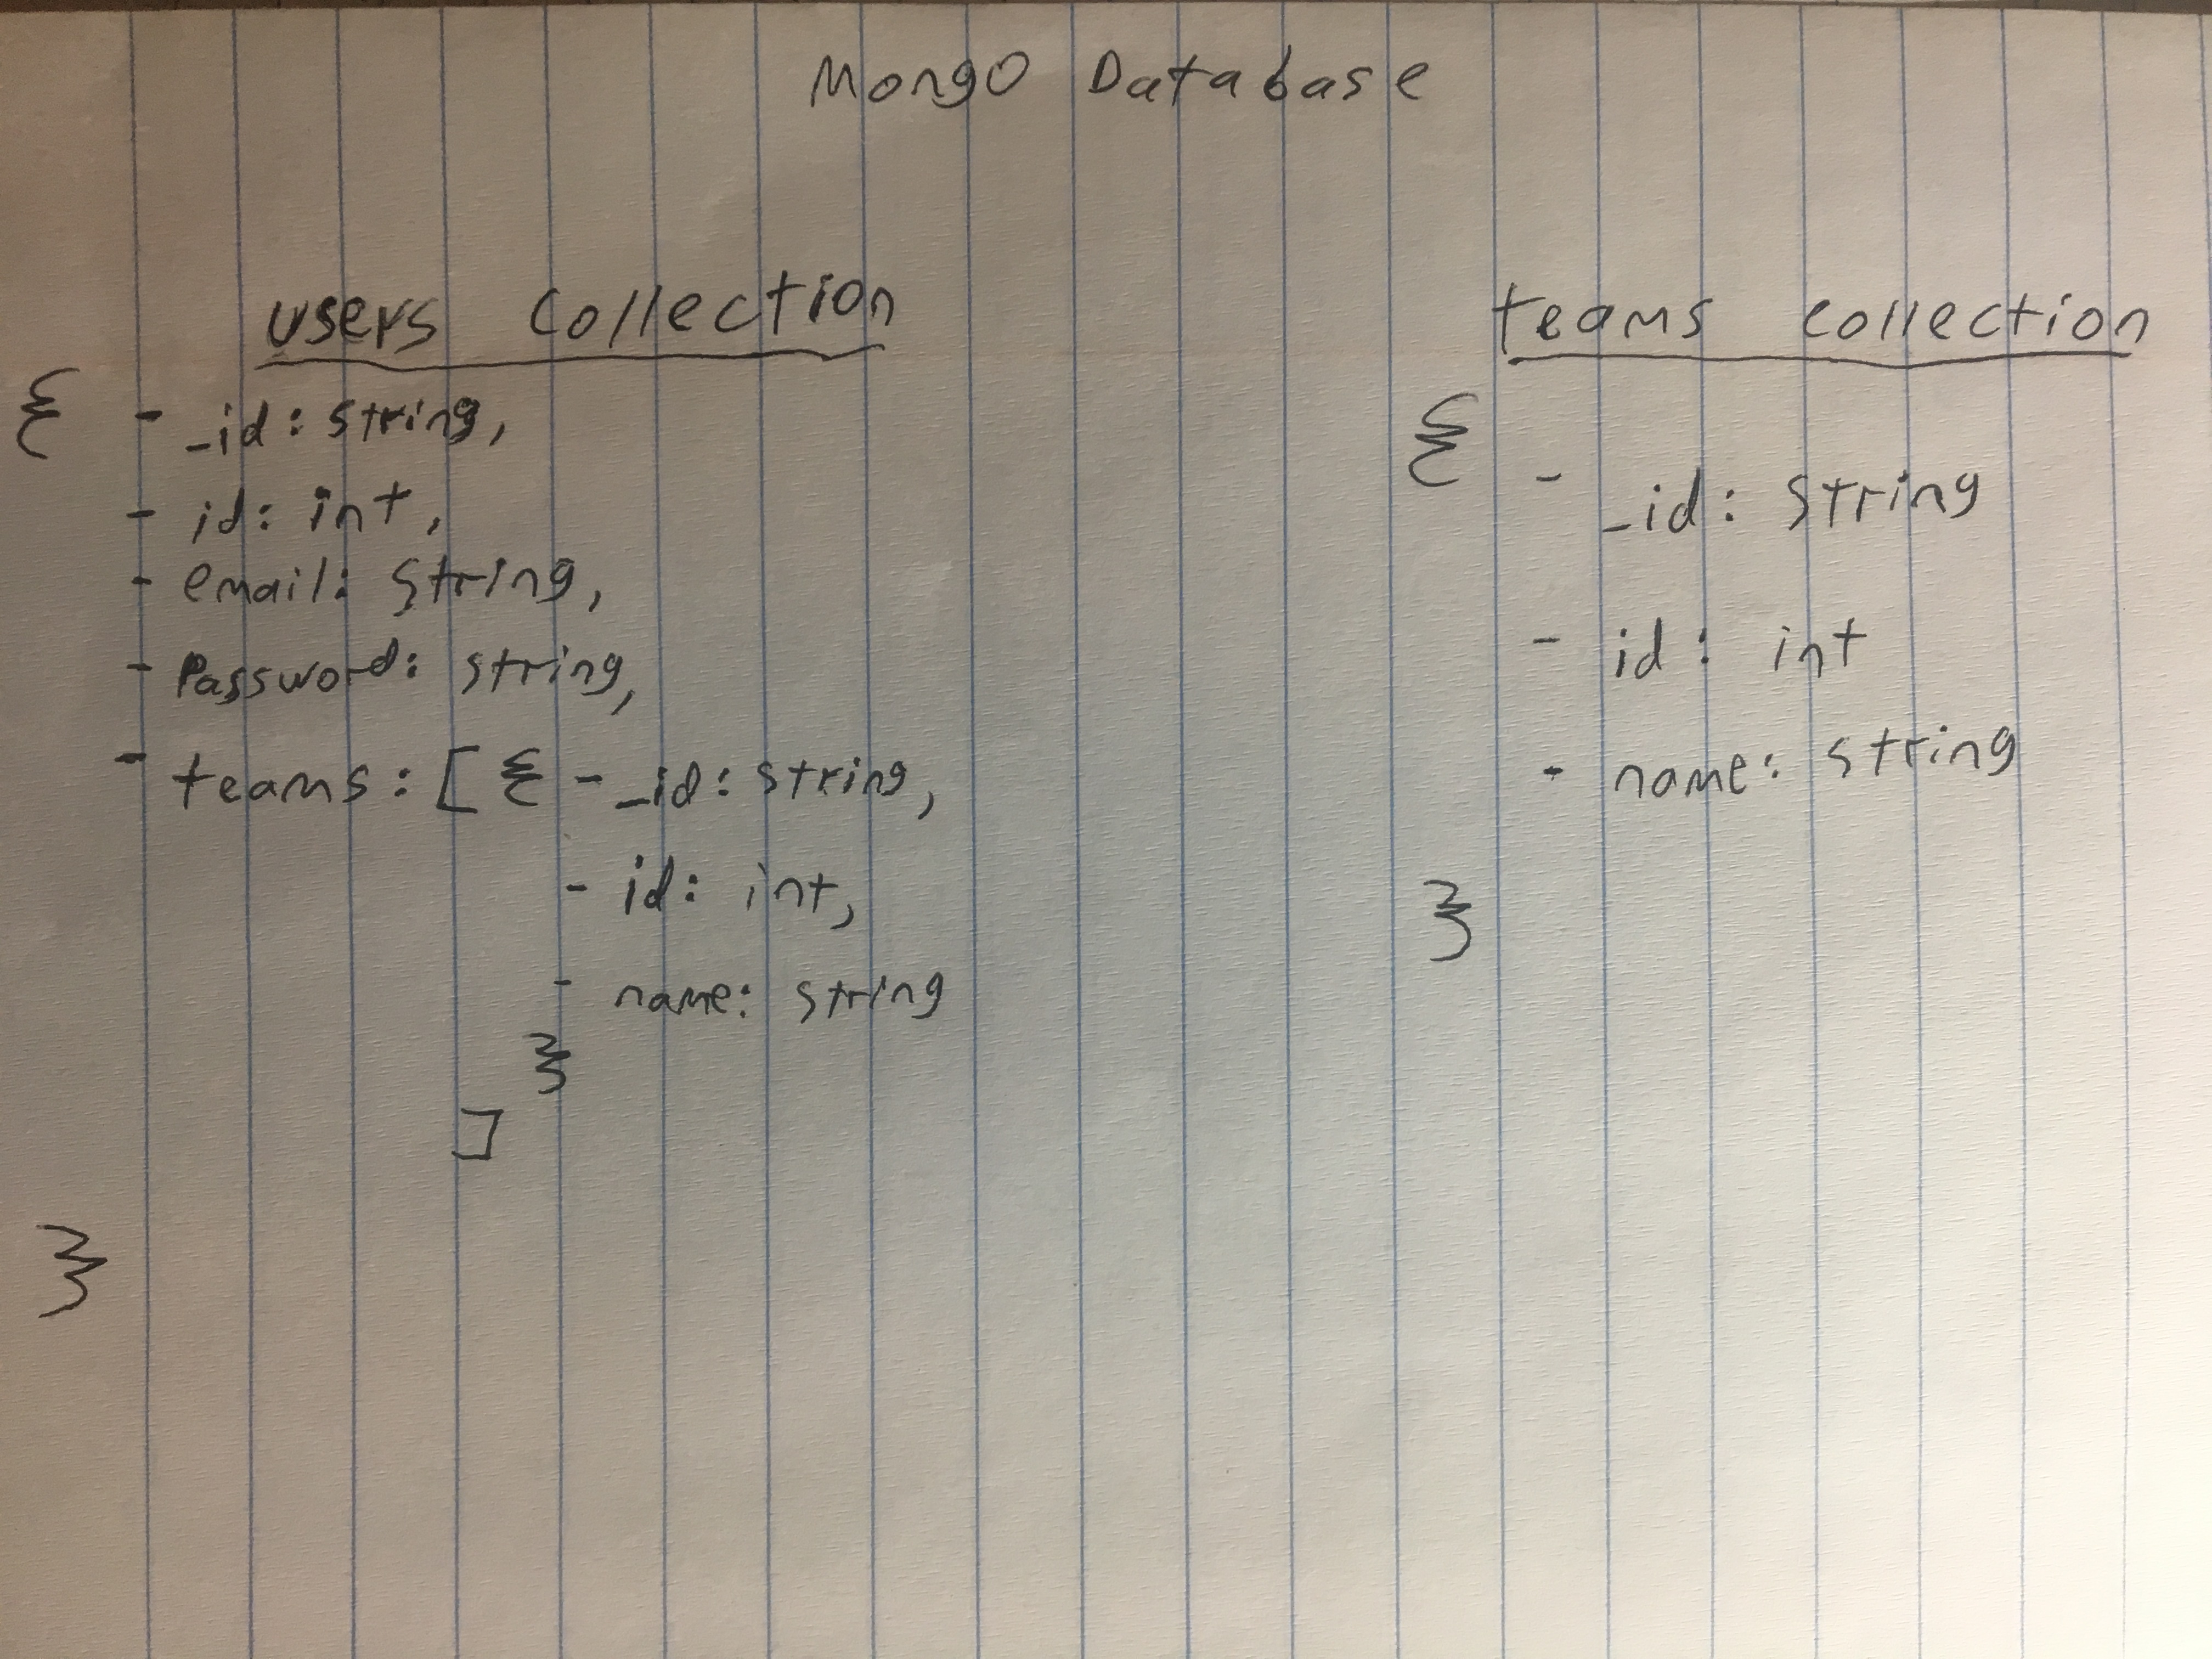 Mongo Database
users collection
{ - _id: string,
- id: int,
- email: string,
- Password: string,
- teams: [ { - _id: string,
- id: int,
- name: string
}
]
}
teams collection
{ - _id: string
- id: int
- name: string
}